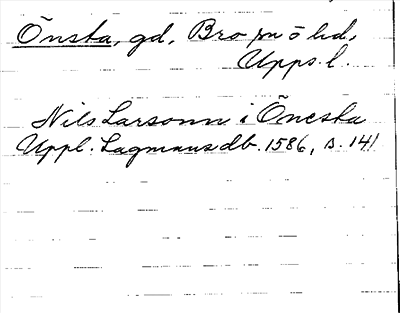 Õnsta, gd, Bro sn o hd,
Upps. l.
Nils Larsonn i Õnesta
Uppl. Lagmansdb. 1586, s. 141